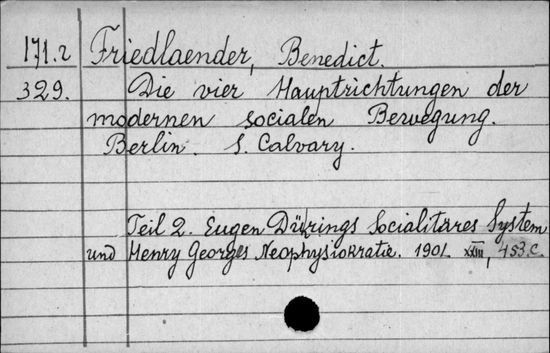 171.2 Friedlaender, Benedict.
329. Die vier Hauptrichtungen der
modernen socialen Bewegung.
Berlin. S. Calvary.
Teil 2. Eugen Dührings Socialitäres System
und Henry Georges Neophysiokratie. 1901. XXIII, 453 c.